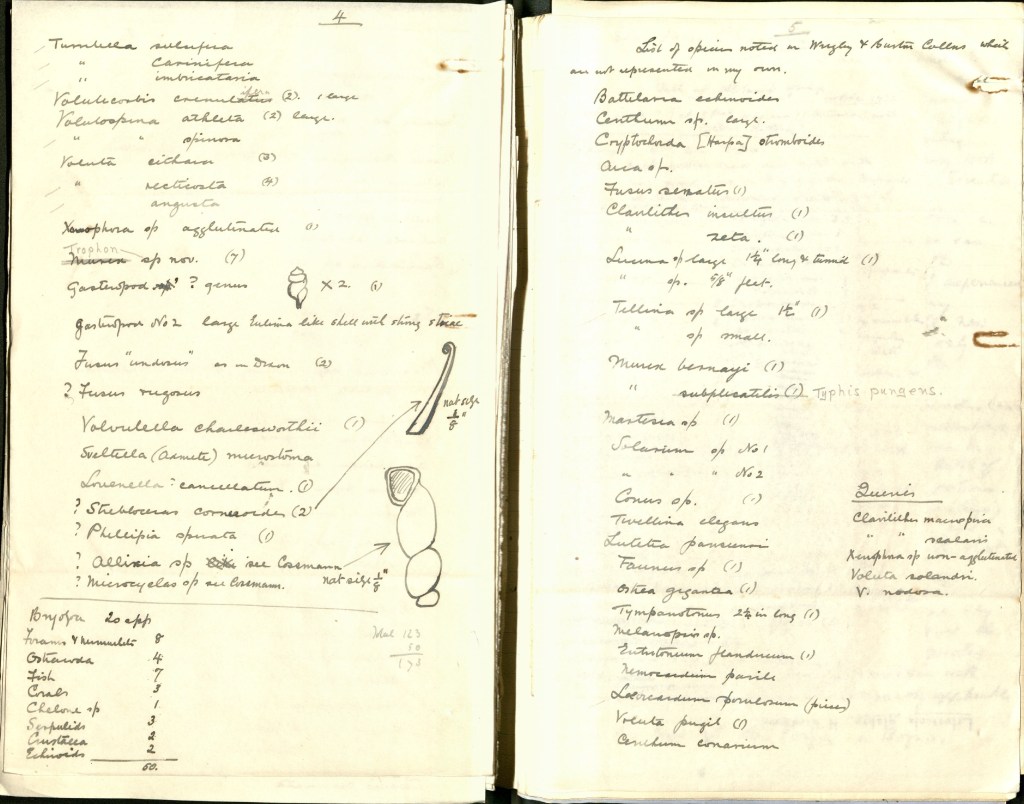 4
Turritella sulcifera
" Carinifera
" imbricataria
Volutocorbis crenulatus (2). 1 large
Volutospina athleta (2) large.
" " spinosa
Voluta cithara (3)
" recticosta (4)
angusta
Xenophora sp agglutinated (1)
Trophon
Murex sp nov. (7)
Gasteropod ? genus X 2. (1)
Gasteropod No 2 large Eulima like shell with strong striae
Fusus "undosus" as in Dixon (2)
? Fusus rugosus
nat size 1/8"
Volvulella charlesworthii (1)
Sveltella (Admete) microstoma
Louenella cancellatum (1)
? Strebloceras cornuoides (2)
? Phillipia spirata (1)
? Allixia sp see Cossmann
? Microcycles sp see Cossmann. nat size 1/8"
Bryozoa 20 spp
Forams & Nummulites 8
Ostracoda 4
Fish 7
Corals 3
Chelone sp 1
Serpulids 3
Crustacea 2
Echinoids 2
50.
Total 123
50
173
5
List of species noted in Wrigley & Curtis Collns which
are not represented in my own.
Battelaria echinoides
Cerithium sp. large.
Cryptochorda [Harpa] stromboides
Arca sp.
Fusus serratus (1)
Clavilithes insultus (1)
" zeta. (1)
Lucina sp large 1¼" long & tumid (1)
" sp. 5/8" flat.
Tellina sp large 1½" (1)
" sp small.
Murex bernayi (1)
" subplicatilis (1) Typhis pungens.
Martesia sp (1)
Solarium sp No 1
" " " No 2
Conus sp. (1)
Tivellina elegans
Lutetia parisiensis
Faunus sp (1)
Ostrea gigantea (1)
Tympanotonus 2½ in long (1)
Melanopsis sp.
Euthriofusus (1)
Nemocardium parile
Loxocardium porulosum (pieces)
Voluta pugil (1)
Cerithium conarium
Queries
Clavilithes macrospira
" " scalaris
Xenophora sp non-agglutinated
Voluta solandri.
V. nodosa.